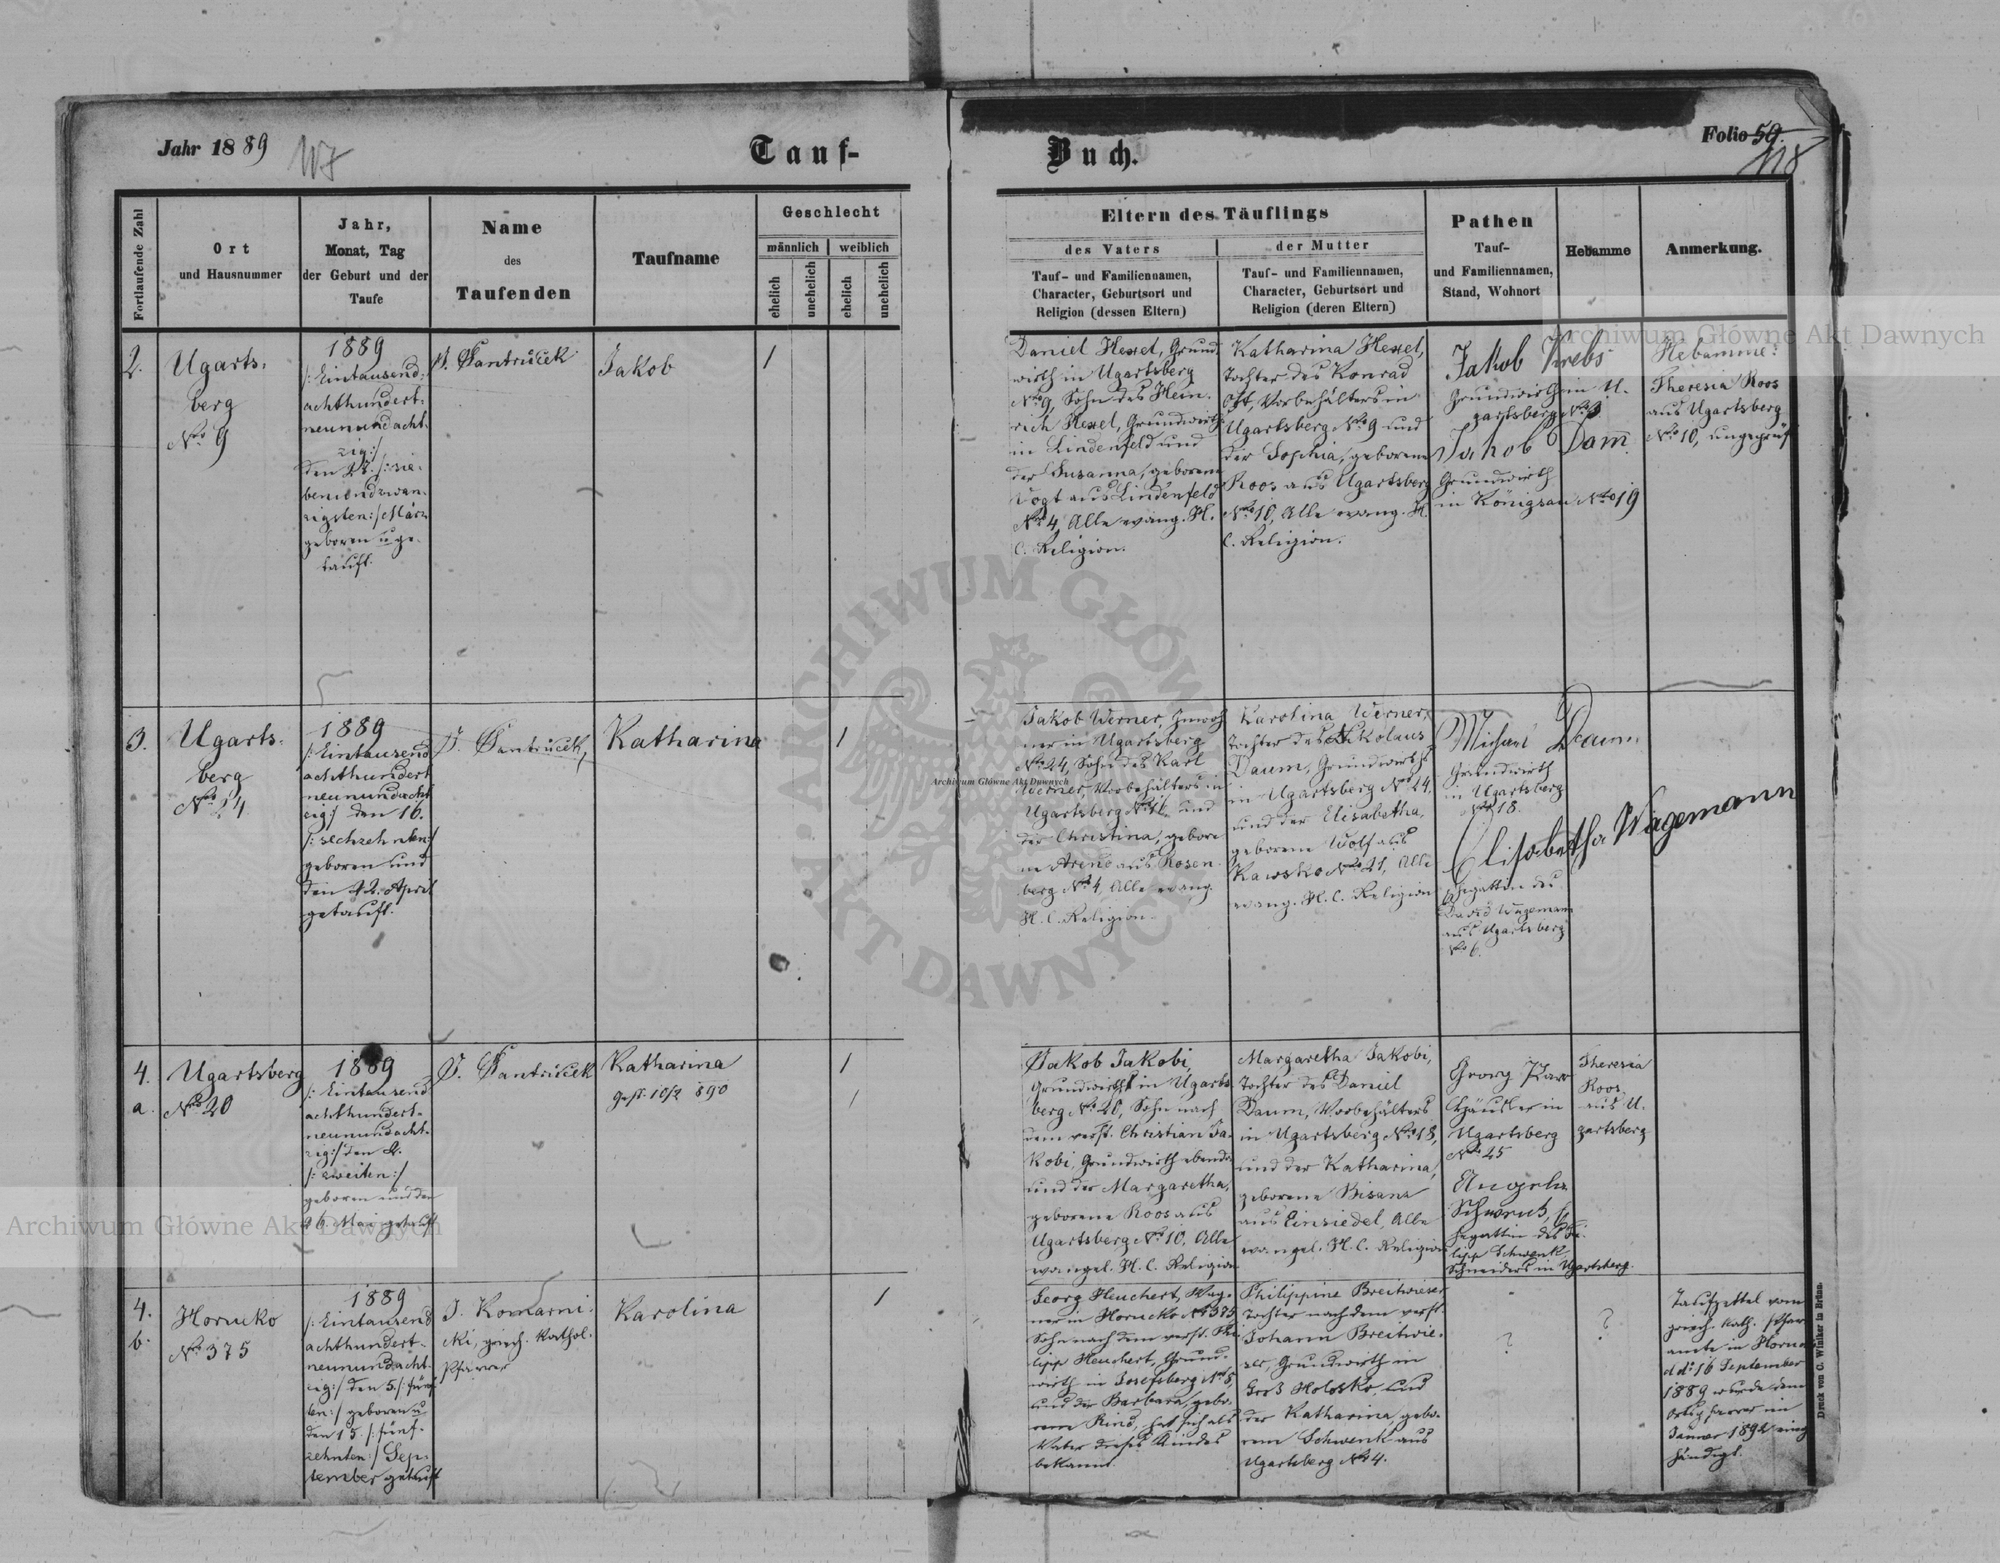 Jahr 1889
117
Tauf-
Buch.
Folio 59.
118
Fortlaufende Zahl
Ort
und Hausnummer
Jahr,
Monat, Tag
der Geburt und der
Taufe
Name
des
Taufenden
Taufname
Geschlecht
männlich
weiblich
ehelich
unehelich
ehelich
unehelich
Eltern des Täuflings
des Vaters
Tauf- und Familiennamen,
Character, Geburtsort und
Religion (dessen Eltern)
der Mutter
Tauf- und Familiennamen,
Character, Geburtsort und
Religion (deren Eltern)
Pathen
Tauf-
und Familiennamen,
Stand, Wohnort
Hebamme
Anmerkung.
2.
Ugarts-
berg
No 9
1889
/: Eintausend-
achthundert-
neunundacht-
zig :/
den 27. /: sie-
benundzwan-
zigsten :/ März
geboren u ge-
tauft.
J. Santrůček
Jakob
1
Daniel Hexel, Grund-
wirth in Ugartsberg
No 9, Sohn des Hein-
rich Hexel, Grundwirth
in Lindenfeld und
der Susanna, geborene
Vogt aus Lindenfeld
No 4, Alle evang. H.
C. Religion.
Katharina Hexel,
Tochter des Konrad
Ott, Vorbehälters in
Ugartsberg No 9 und
der Sophia, geborene
Roos aus Ugartsberg
No 10, Alle evang. H.
C. Religion.
Jakob Krebs
Grundwirth in U-
gartsberg No 3
Jakob Dam
Grundwirth
in Königsau No 19
Hebamme:
Theresia Roos
aus Ugartsberg
No 10, ungeprüft
3.
Ugarts-
berg
No 24
1889
/: Eintausend
achthundert
neunundacht
zig :/ den 16.
/: sechzehnten :/
geboren und
den 22. April
getauft.
J. Santrůček,
Katharina
1
Jakob Werner, Inwoh-
ner in Ugartsberg
No 24, Sohn des Karl
Werner, Vorbehälters in
Ugartsberg No 16 und
der Christina, gebore-
ne Arend aus Rosen-
berg No 4, Alle evang.
H. C. Religion.
Karolina Werner,
Tochter des Nikolaus
Daum, Grundwirths
in Ugartsberg No 24,
und der Elisabetha,
geborene Wolf aus
Kawsko No 21, Alle
evang. H. C. Religion
Michael Daum
Grundwirth
in Ugartsberg
No 18.
Elisabetha Wagemann
Ehegattin des
David Wagemann
aus Ugartsberg
No 6.
4.
a.
Ugartsberg
No 20
1889
/: Eintausend
achthundert-
neunundacht-
zig :/ den 2.
/: zweiten :/
geboren und den
26. Mai getauft
J. Santrůček
Katharina
gest. 10/2 890
1
1
Jakob Jakobi,
Grundwirth in Ugarts-
berg No 20, Sohn nach
dem verst. Christian Ja-
kobi, Grundwirth ebenda
und der Margaretha,
geborene Roos aus
Ugartsberg No 10. Alle
evangel. H. C. Religion
Margaretha Jakobi,
Tochter des Daniel
Daum, Vorbehälters
in Ugartsberg No 18,
und der Katharina,
geborene Bisanz
aus Einsiedel, Alle
evangel. H. C. Religion
Georg
Häusler in
Ugartsberg
No 45
Schwenk, E-
hegattin des Fi-
lipp Schwenk,
Schneiders in Ugartsberg.
Theresia
Roos
aus U-
gartsberg
4.
b.
Horucko
No 375
1889
/: Eintausend
achthundert-
neunundacht-
zig :/ den 5. /: fünf-
ten :/ geboren u
den 15. /: fünf-
zehnten :/ Sep-
tember getauft
J. Komarni-
cki, griech. kathol.
Pfarrer
Karolina
1
Georg Heuchert, Wag-
ner in Horucko No 375
Sohn nach dem verst. Phi-
lipp Heuchert, Grund-
wirth in Josefsberg No 8,
und der Barbara, gebo-
rene Rind, hat sich als
Vater dieses Kindes
bekannt.
Philippine Breitwieser
Tochter nach dem verst.
Johann Breitwie-
ser, Grundwirth in
Groß Holosko, und
der Katharina, gebo-
rene Schwenk aus
Ugartsberg No 4.
?
?
Taufzettel vom
griech. kath. Pfarr-
amte in Horucko
ddo 16 September
1889 wurde dem
Ortspfarrer im
Jänner 1892 einge-
händigt.
Druck von C. Winiker in Brünn.
Archiwum Główne Akt Dawnych
Archiwum Główne Akt Dawnych
Archiwum Główne Akt Dawnych
ARCHIWUM GŁÓWNE AKT DAWNYCH